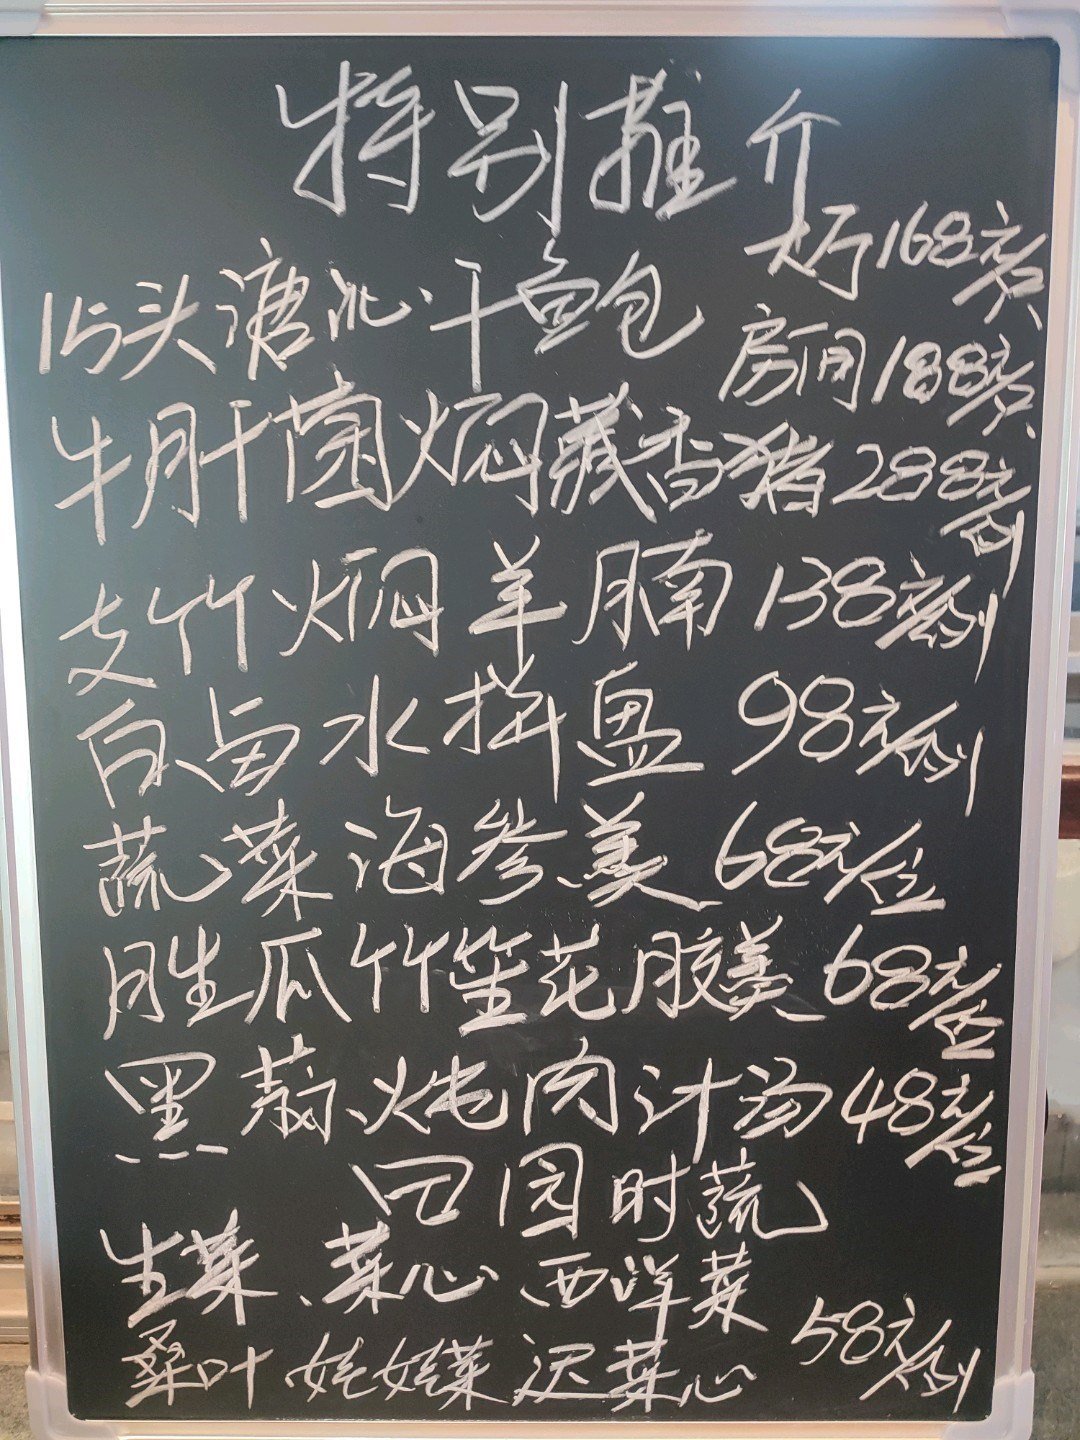 特别推介
大厅168元/只
15头溏心干鲍
房间188元/只
牛肝菌焖藏香猪288元/例
支竹焖羊腩138元/例
白卤水拼盘98元/例
蔬菜海参羹68元/位
胜瓜竹笙花胶羹68元/位
黑蒜炖肉汁汤48元/位
田园时蔬
生菜、菜心 西洋菜
桑叶 娃娃菜 迟菜心 58元/例